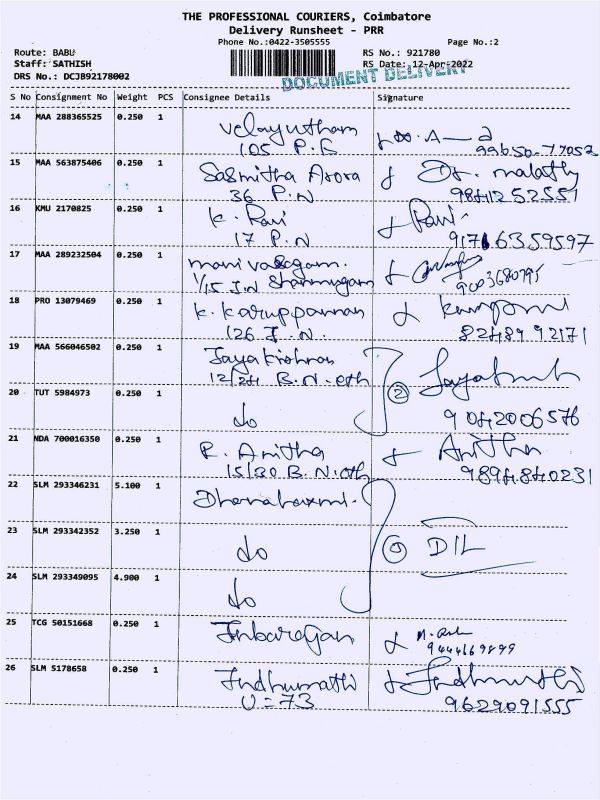 THE PROFESSIONAL COURIERS, Coimbatore
Delivery Runsheet - PRR
Phone No.:0422-3505555 Page No.:2
Route: BABU RS No.: 921780
Staff: SATHISH RS Date: 12-Apr-2022
DRS No.: DCJB92178002
DOCUMENT DELIVERY
S No Consignment No Weight PCS Consignee Details Signature
14 MAA 288365525 0.250 1 Velayutham
105 P.G 99650-77052
15 MAA 563875406 0.250 1 Sasmitha Arora Dr. malathy
36 P.N 9841252551
16 KMU 2170825 0.250 1 K. Ravi Ravi
17 P.N 9171635 9597
17 MAA 289232504 0.250 1 manivasagam.
1/15 J.N Shanmugam 9003680795
18 PRO 13079469 0.250 1 K. Karuppannan
126 J.N. 82489 92171
19 MAA 566046502 0.250 1 Jayakrishnan
12/24 B.N. oth 2
20 TUT 5984973 0.250 1 do 9042006576
21 NDA 700016350 0.250 1 R. Anitha Anitha
15/30 B.N. oth 9894840231
22 SLM 293346231 5.100 1
23 SLM 293342352 3.250 1 do DIL
24 SLM 293349095 4.900 1 do
25 TCG 50151668 0.250 1
9444169899
26 SLM 5178658 0.250 1 Indhumathi Indhumathi
U=73 9629091555